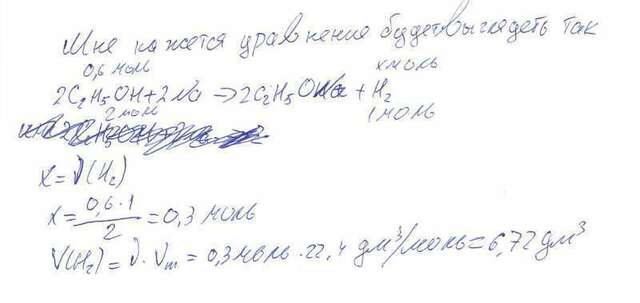 Мне кажется уравнение будет выглядеть так
0,6 моль x моль
2C₂H₅OH + 2Na → 2C₂H₅ONa + H₂
2 моль 1 моль
x = ν(H₂)
x = 0,6 · 1 / 2 = 0,3 моль
V(H₂) = ν · Vm = 0,3 моль · 22,4 дм³/моль = 6,72 дм³